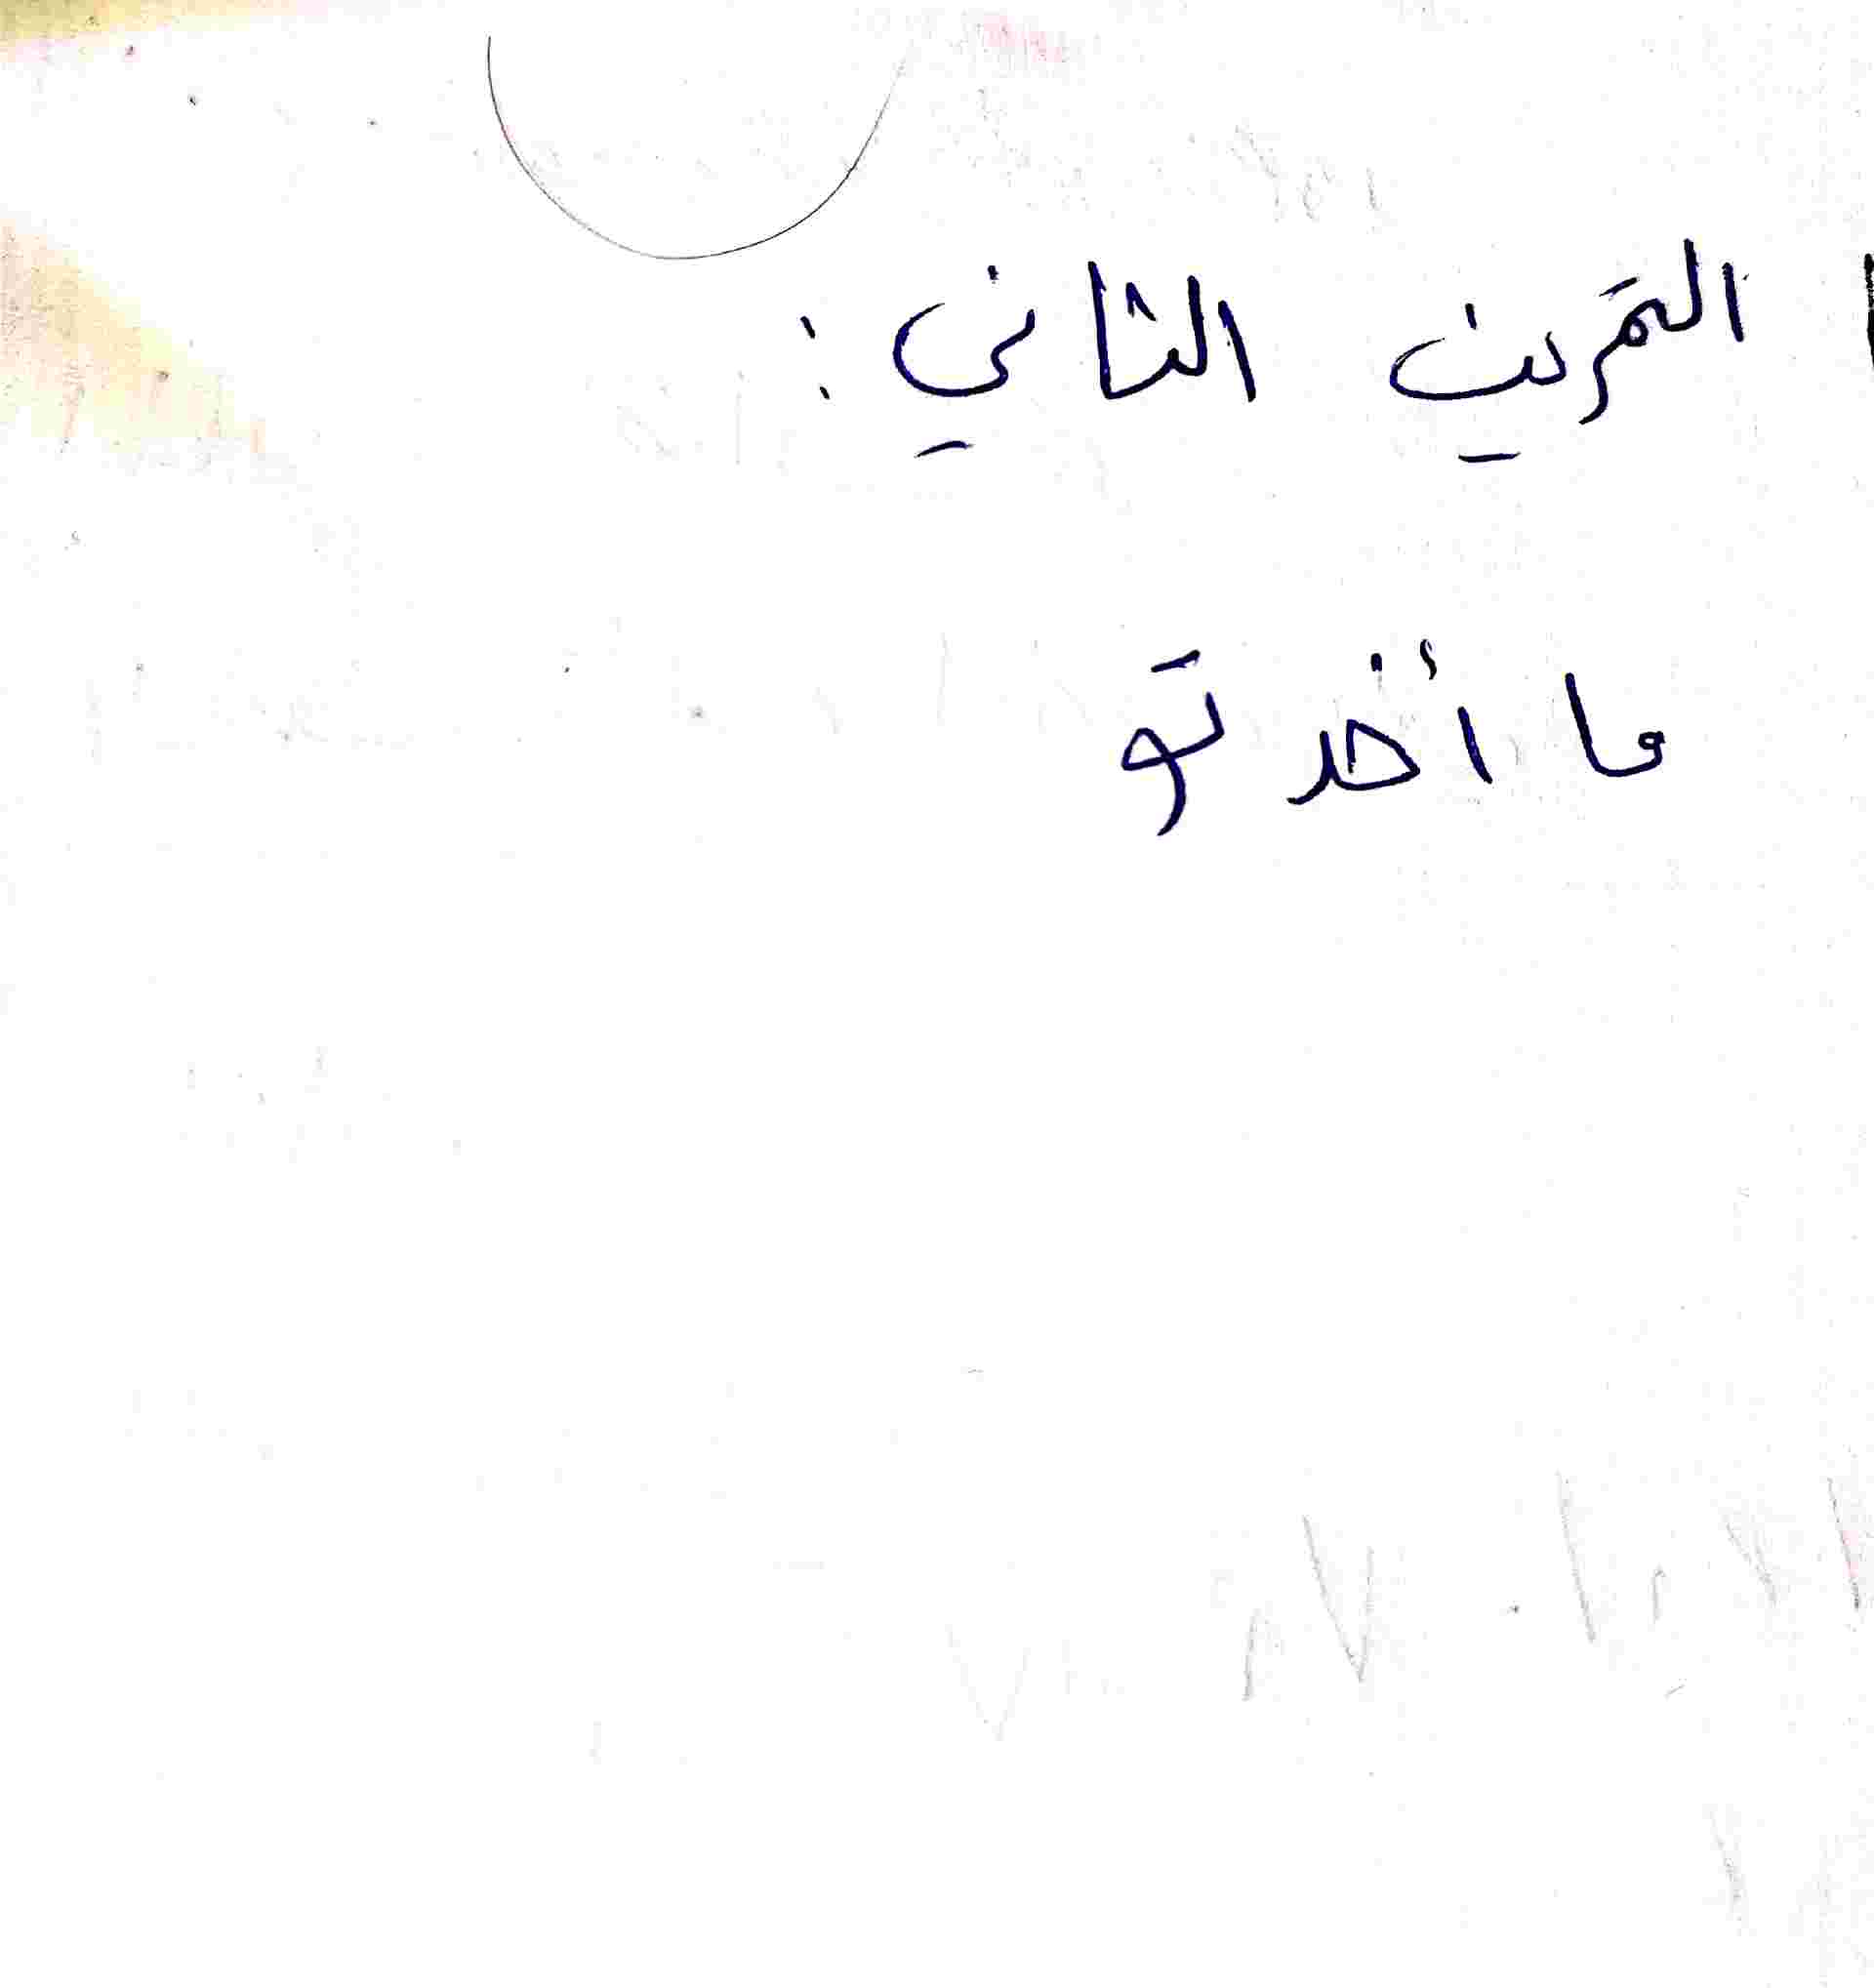 التمرين الثاني :
ما أخد تو